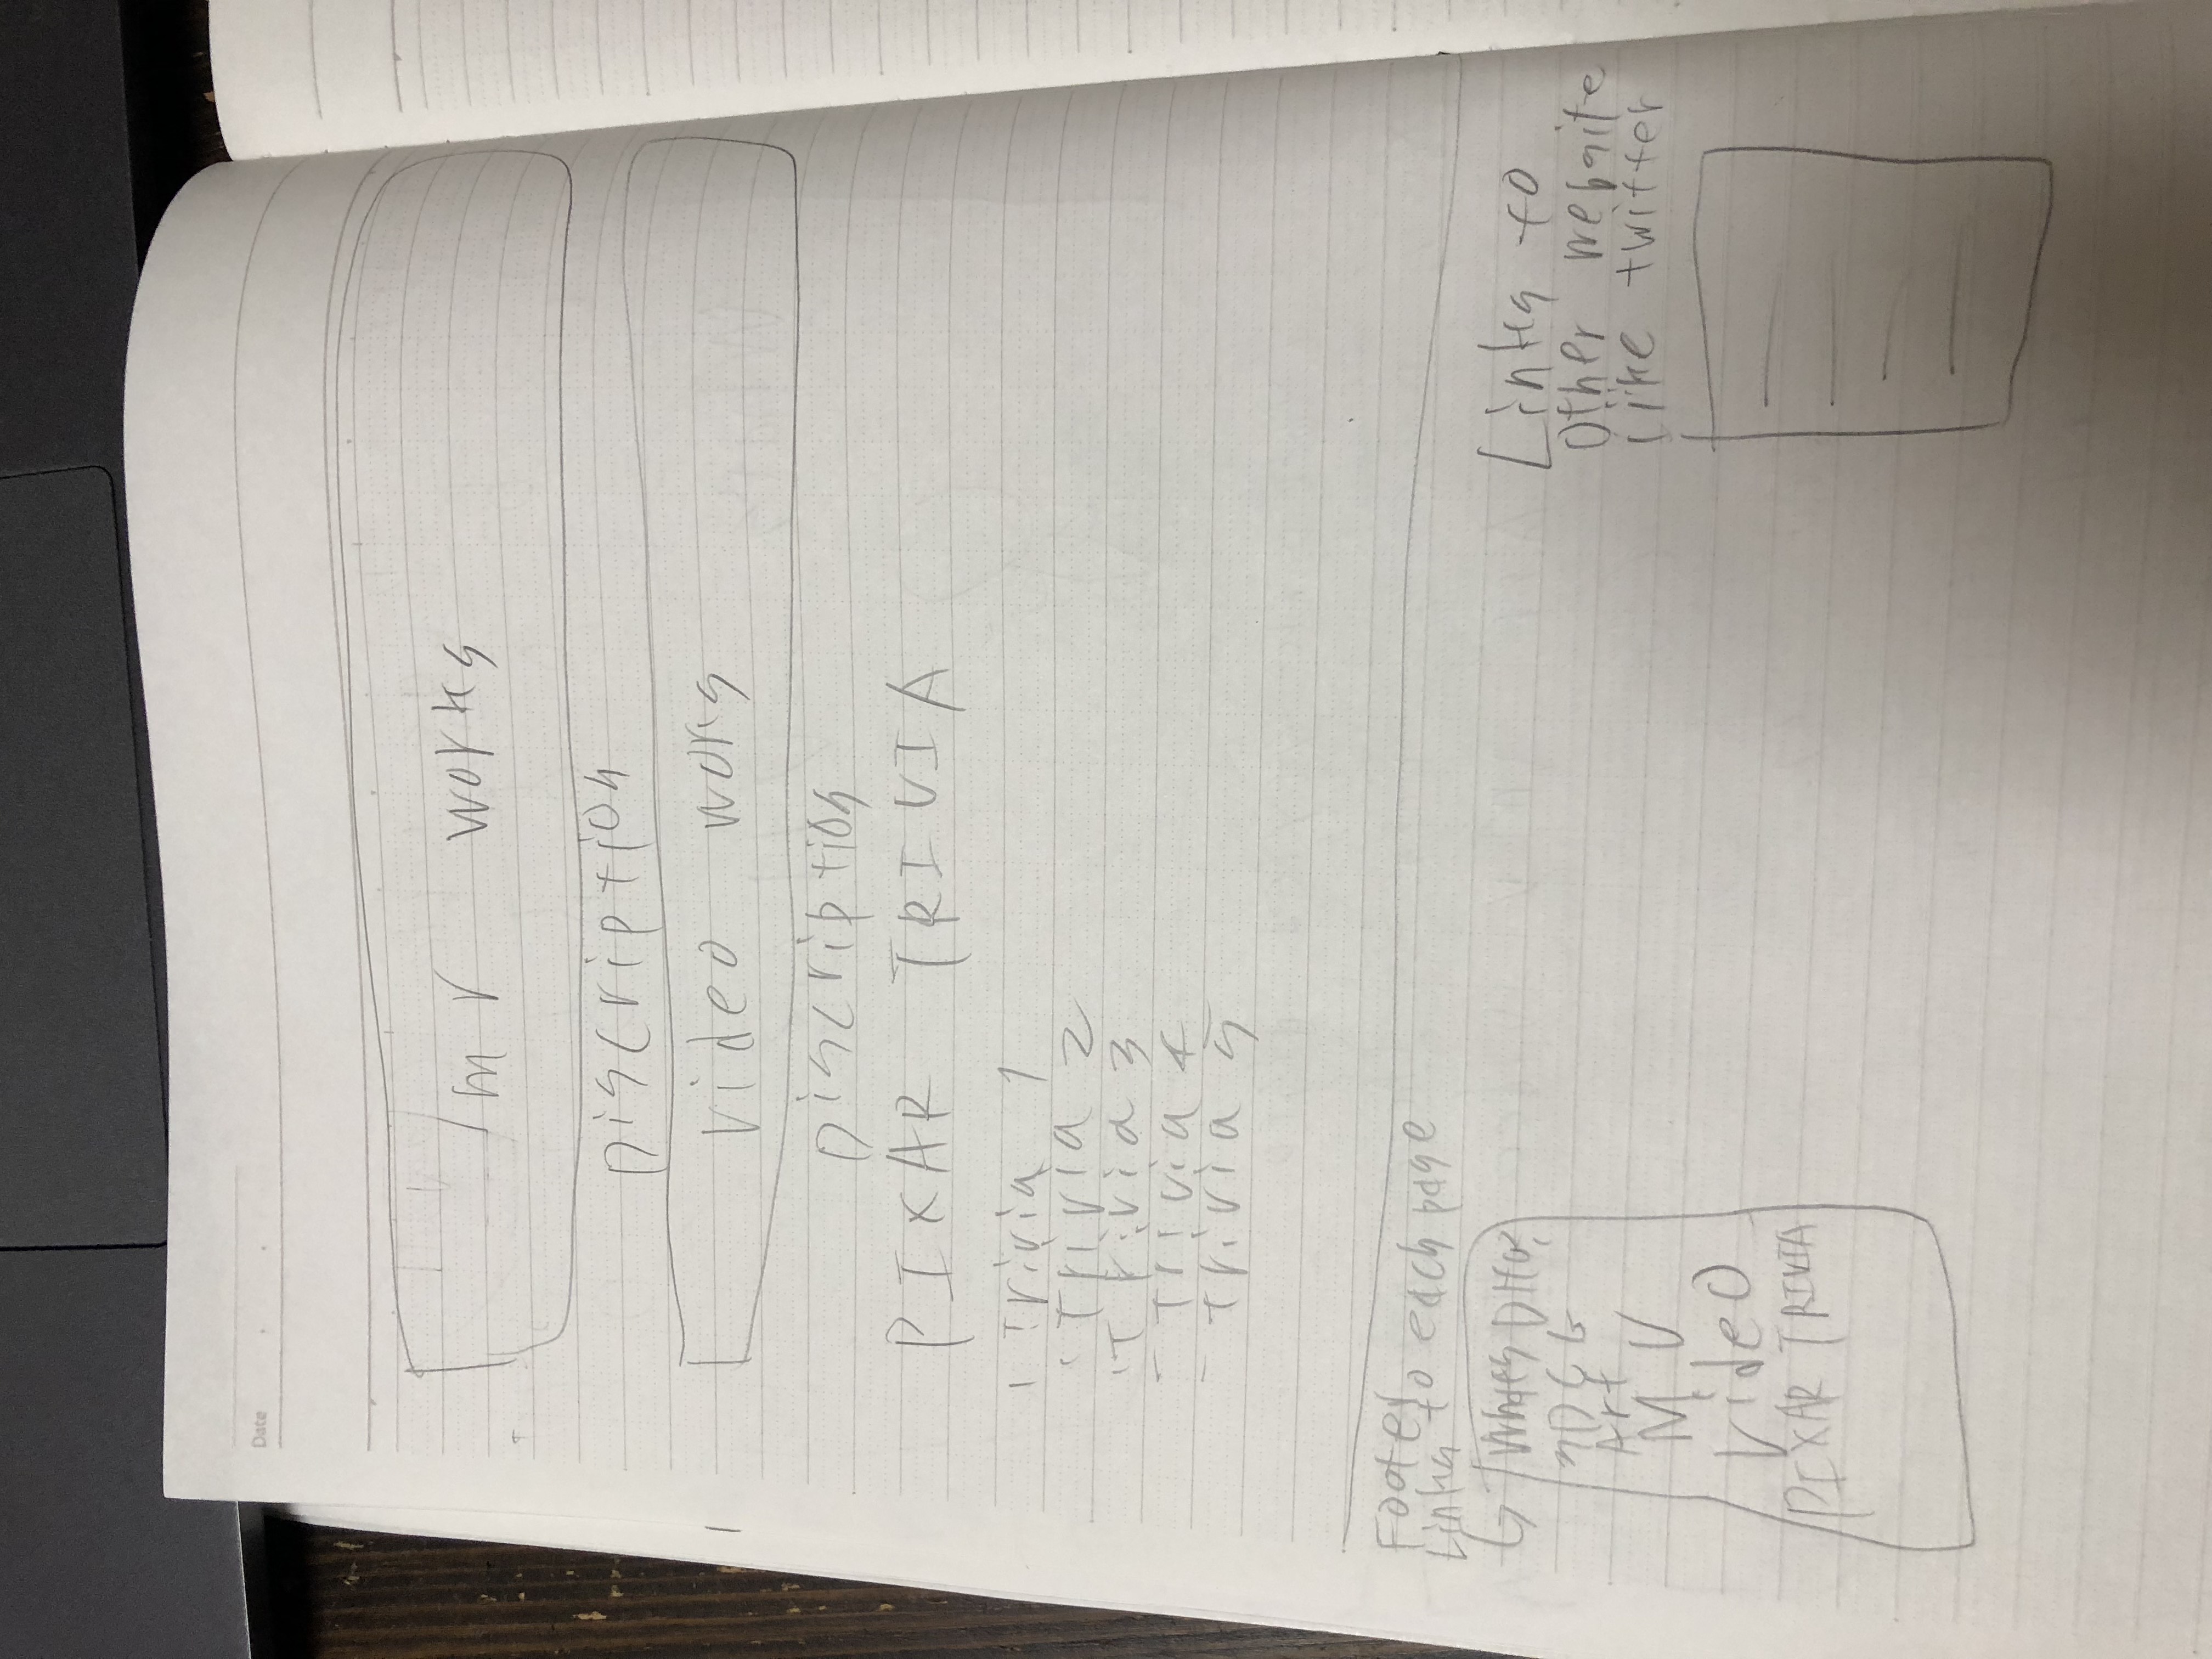 Date
mv works
Discription
video works
Discription
PIXAR TRIVIA
Trivia 1
Trivia 2
Trivia 3
Trivia 4
Trivia 5
Footer
Links to each page
3DCG
Art
MV
Video
PIXAR TRIVIA
Links to
other website
like twitter